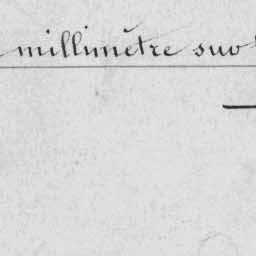 millimètre sur